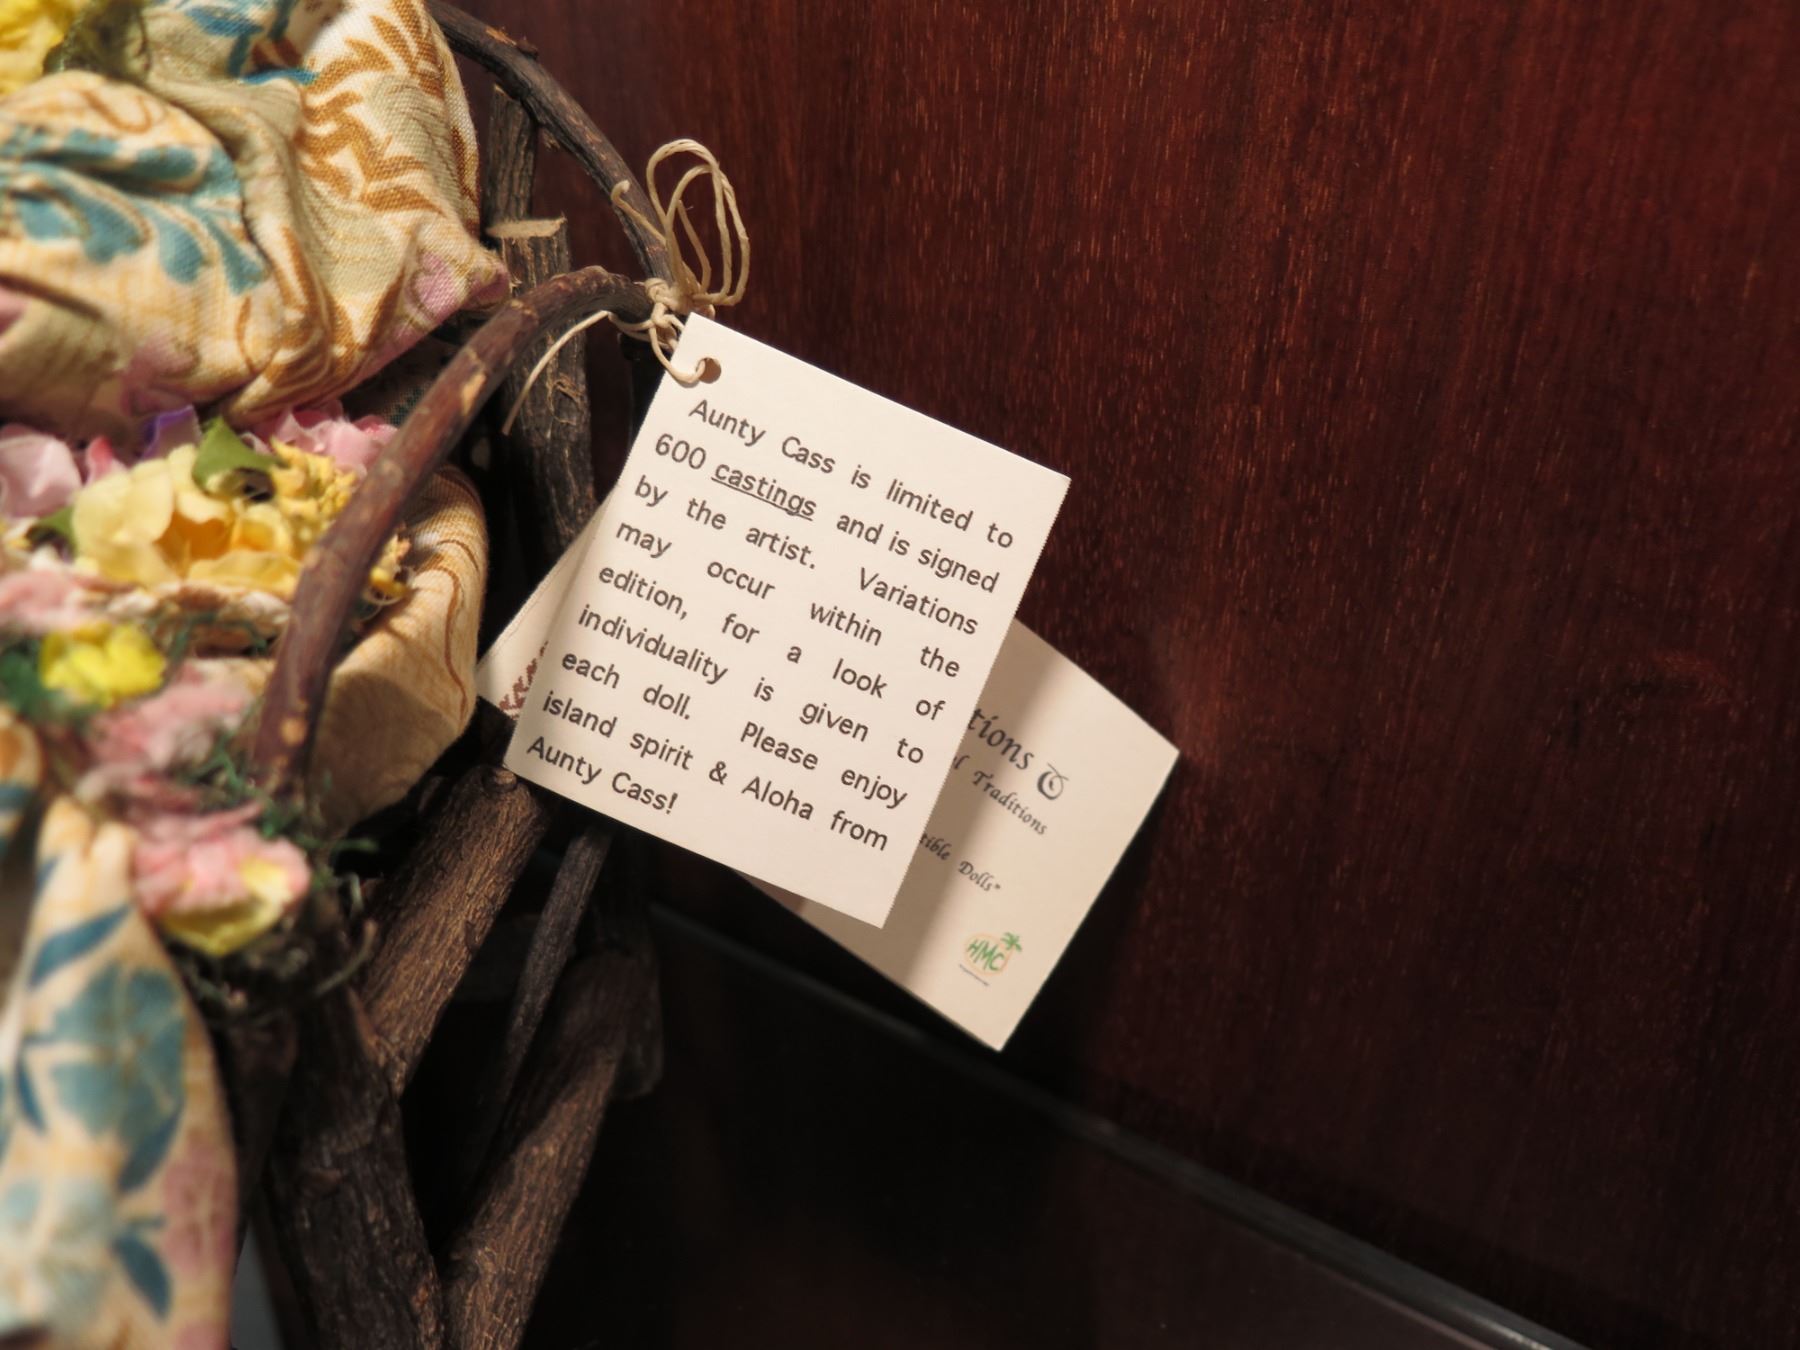 Aunty Cass is limited to
600 castings and is signed
by the artist. Variations
may occur within the
edition, for a look of
individuality is given to
each doll. Please enjoy
island spirit & Aloha from
Aunty Cass!
Traditions
Dolls"
HMC